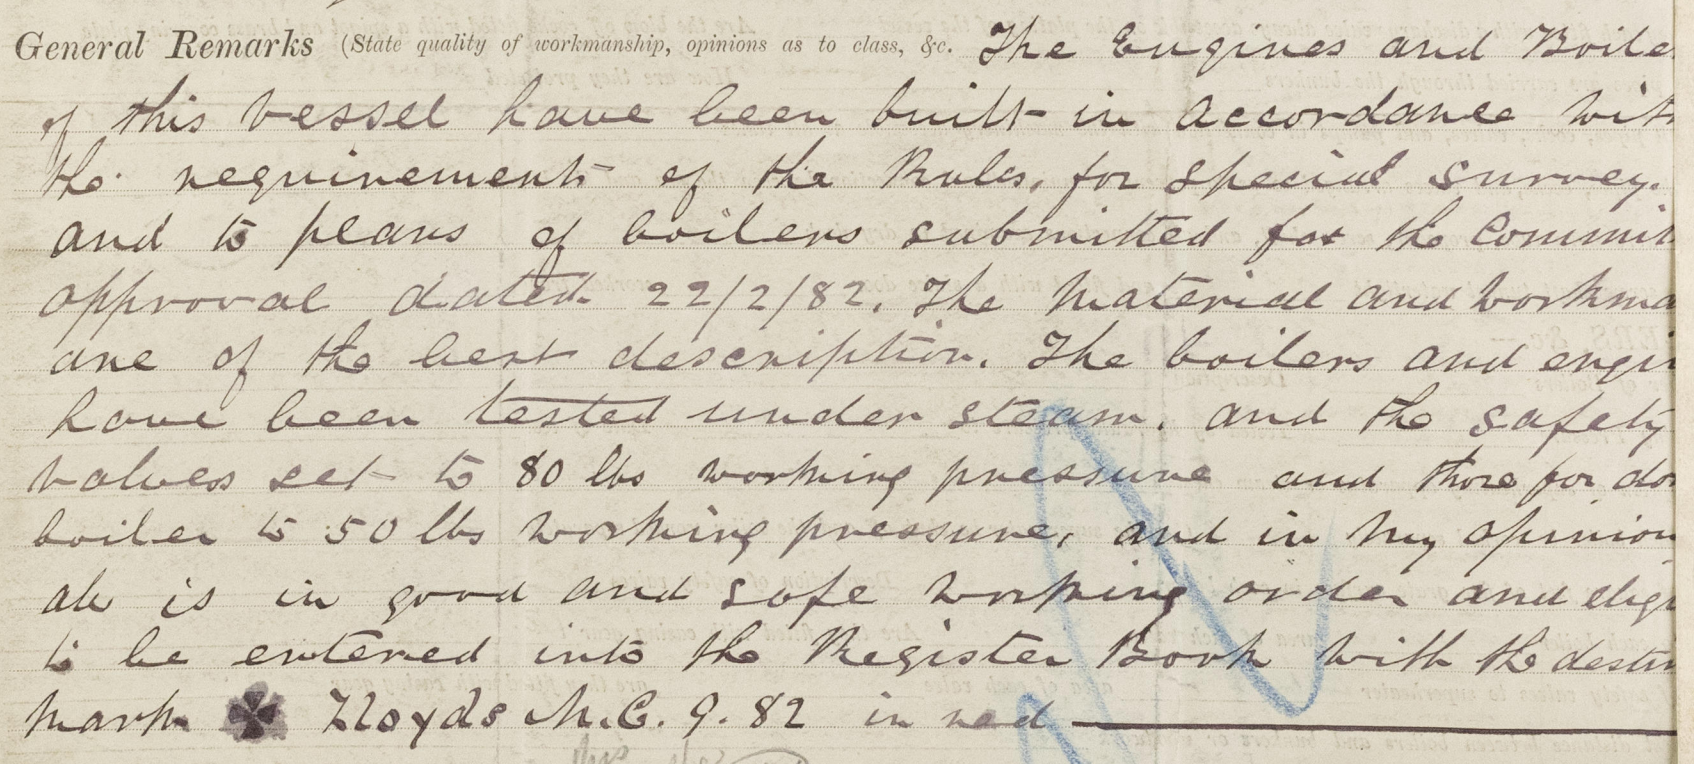 General Remarks (State quality of workmanship, opinions as to class, &c. The Engines and Boile
of this vessel have been built in accordance with
the requirements of the Rules, for special survey.
and to plans of boilers submitted for the Commit
approval dated 22/2/82. The material and workma
are of the best description. The boilers and engi
have been tested under steam, and the safety
valves set to 80 lbs working pressure and those for do
boiler to 50 lbs working pressure, and in my opinion
all is in good and safe working order and elig
to be entered into the Register Book with the distin
mark Lloyds M.C. 9. 82 in red